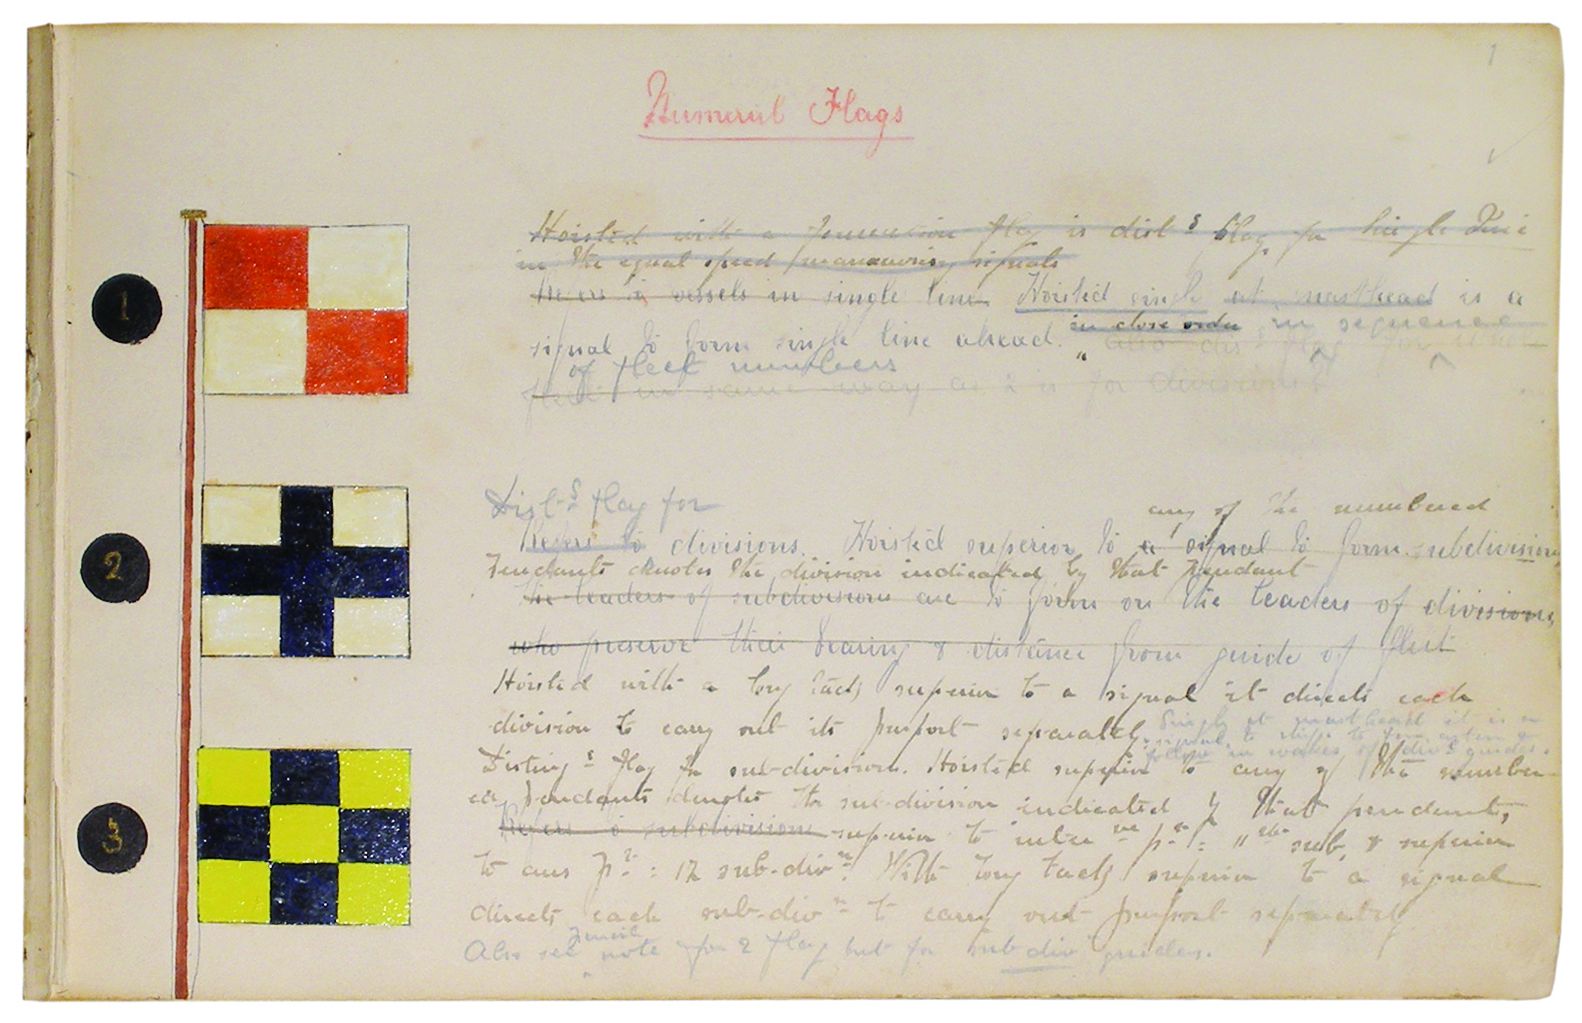 1
Numeral Flags
1
Hoisted with a formation flag is dist s flag for Single Line
in the equal speed manœuvring signals
Refers to vessels in single line Hoisted singly at masthead is a
in close order in sequence
signal to form single line ahead. " also dis flag for
of fleet numbers
fleet in same way as 2 is for divisions
2
Dist s flag for
any of the numbered
Refers to divisions. Hoisted superior to a signal to form subdivisions
Pendants denotes the division indicated by that pendant
the leaders of subdivisions are to form on the leaders of divisions,
who preserve their bearing & distance from guide of fleet
Hoisted with a long tack superior to a signal it directs each
division to carry out its purport separately.
Singly at masthead it is a
signal to ships to form astern &
follow in wakes of div l guides.
3
Disting s flag for sub-division. Hoisted superior to any of the number
ed pendants denotes the sub-division indicated by that pendant,
Refers to subdivisions superior to inter ve p t : 11 th sub, & superior
to ans p t : 12 sub-div n. With long tack superior to a signal
directs each sub-div n to carry out purport separately
pencil
Also see " note for 2 flag but for sub div guides.